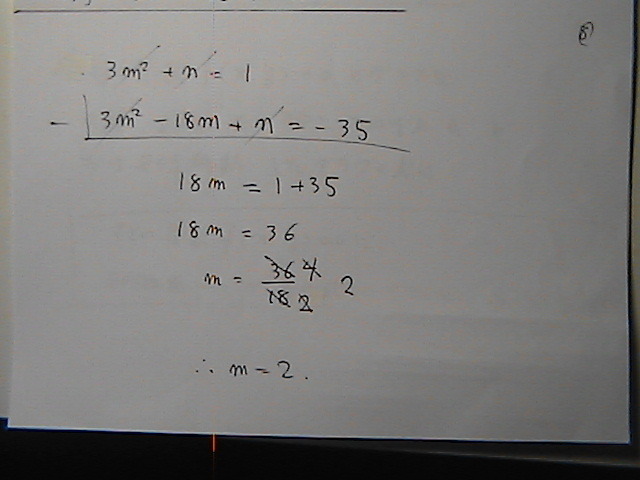 3m² + n = 1
- 3m² - 18m + n = - 35
18m = 1 + 35
18m = 36
m = 36 4 / 18 2 2
∴ m = 2.